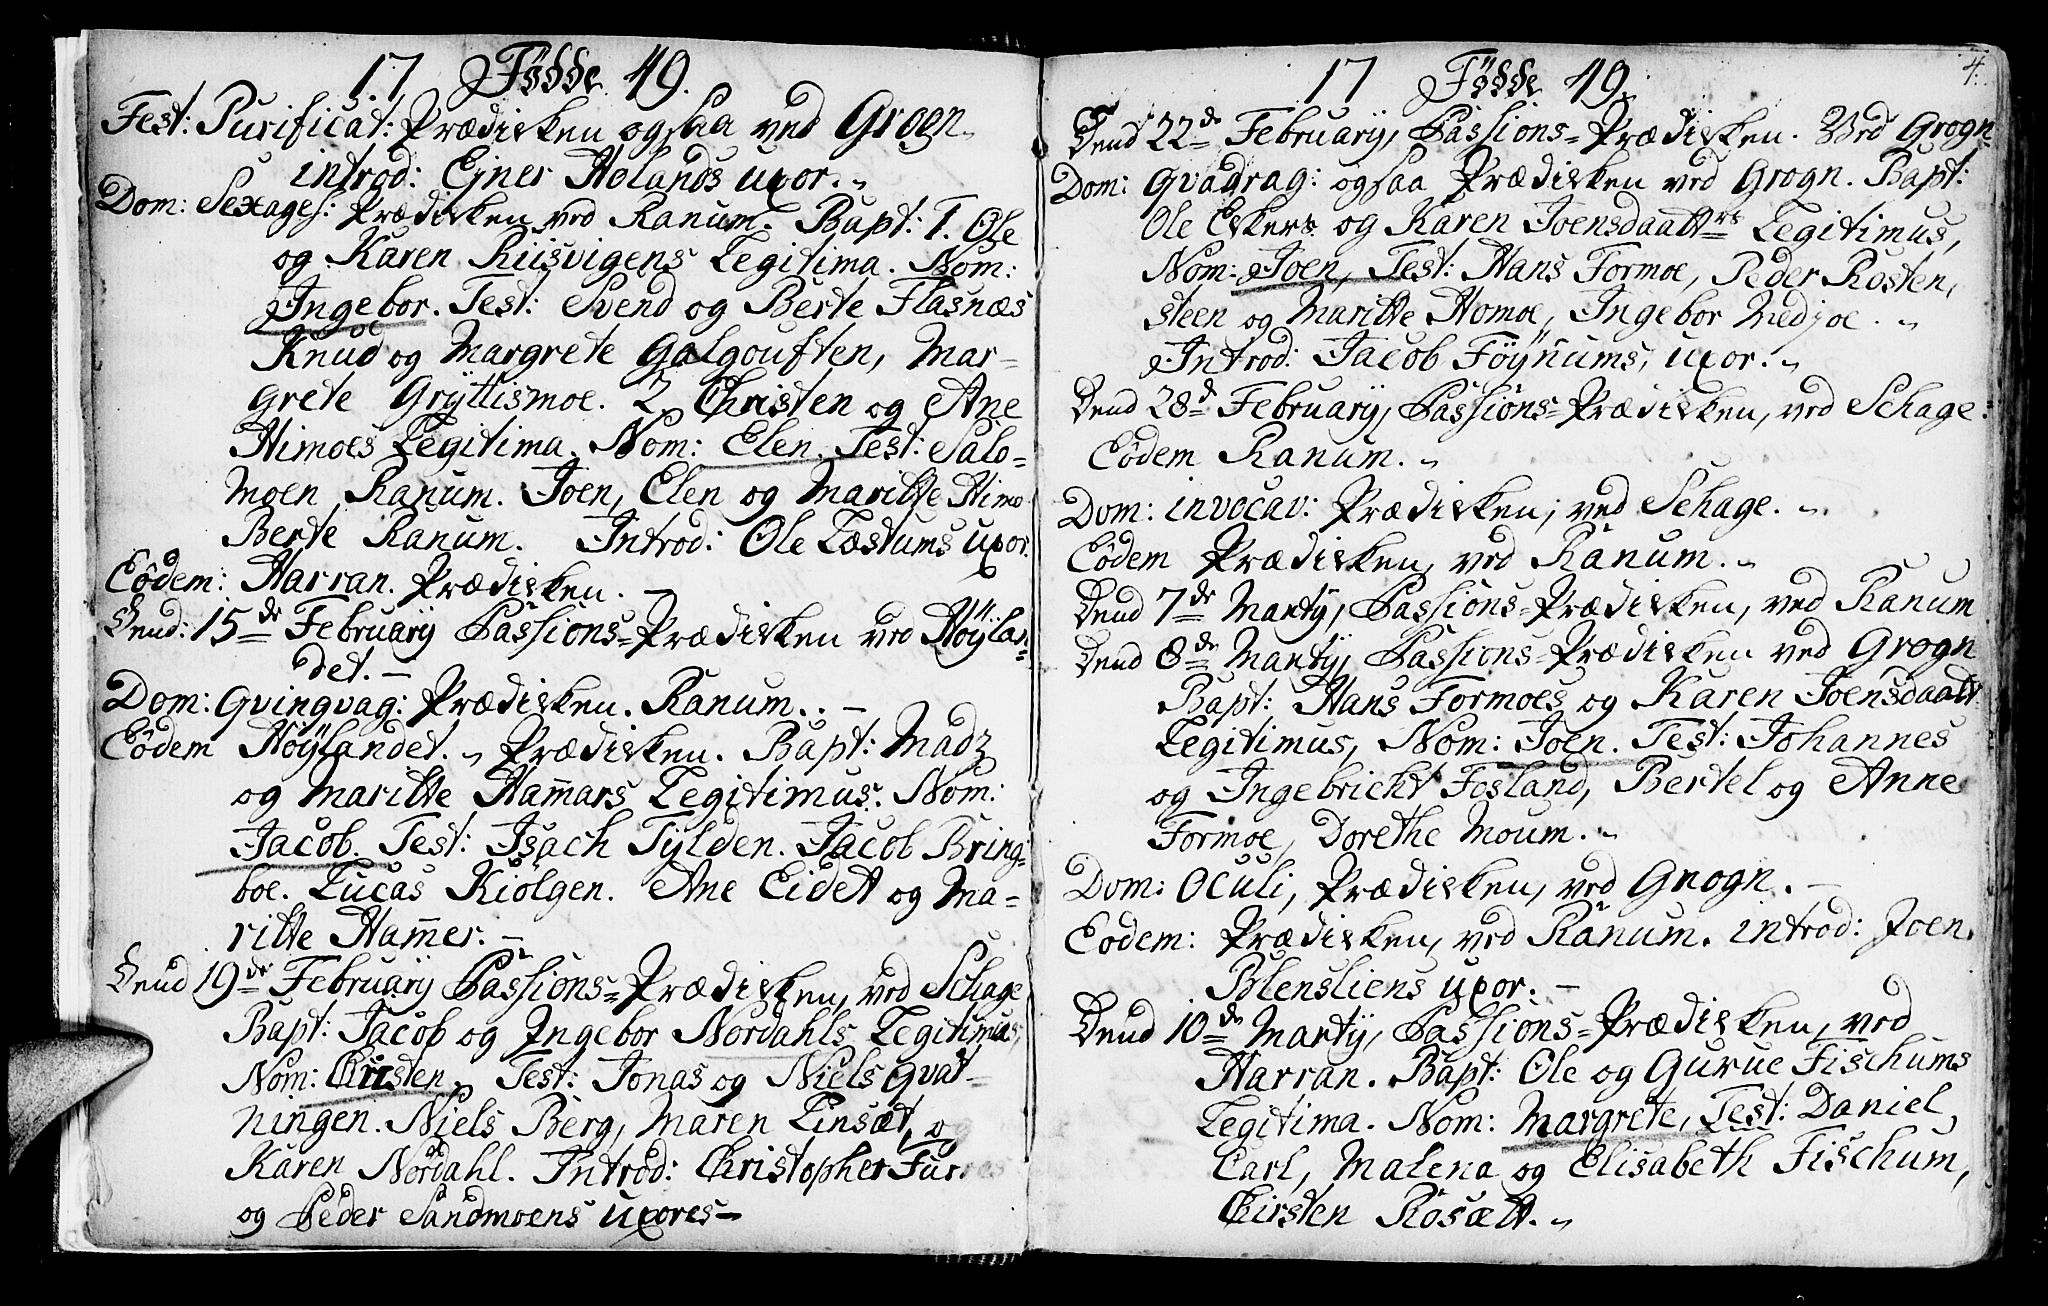 17 Födde 49.
Fest: Purificat: Prædicken ogsaa ved Groen
introd: Ejner Holands uxor.
Dom: Sexages: Prædicken ved Ranum. Bapt: 1. Ole
og Karen Riisvigens Legitima. Nom:
Ingebor. Test: Svend og Berte Flasnæs
Knud og Margrete Galgouften, Mar-
grete Gryttismoe. 2 Christen og Ane
Himoes Legitima. Nom: Elen. Test: Salo-
moen Ranum. Joen, Elen og Maritte Himo
Berte Ranum. Introd: Ole Læstums uxor.
Eôdem: Harran. Prædicken. –
Dend: 15de February Passions=Prædicken ved Höylan=
det. –
Dom: Qvingvag: Prædicken. Ranum. . –
Eôdem Höylandet. Prædicken. Bapt: Madz
og Maritte Ham̄ars Legitimus. Nom:
Jacob. Test: Isach Tylden. Jacob Bring-
boe. Lucas Kiölgen. Ane Eidet og Ma-
ritte Ham̄er. –
Dend 19de February Passions=Prædicken, ved Schage
Bapt: Jacob og Ingebor Nordahls Legitimus,
Nom: Christen, Test: Jonas og Niels Qvat-
ningen. Niels Berg, Maren Linsæt, og
Karen Nordahl. Introd: Christopher
og Peder Sandmoens uxores –
4.
17 Födde 49.
Dend 22de February, Passions=Prædicken. Ved Grogn
Dom: Qvadrag: ogsaa Prædicken ved Grogn. Bapt:
Ole Ekers og Karen Joensdaattrs Legitimus,
Nom: Joen, Test: Hans Formoe, Peder Rosten,
steen og Maritte Homoe, Ingebor Medjoe.
Introd: Jacob Föynums, uxor.
Dend 28d February, Passions=Prædicken, ved Schage.
Eôdem Ranum.
Dom: invocav: Prædicken, ved Schage.
Eôdem Prædicken, ved Ranum.
Dend 7de Marty, Passions=Prædicken, ved Ranum
Dend 8de Marty, Passions=Prædicken ved Grogn
Bapt: Hans Formoes og Karen Joensdaatt.
Legitimus, Nom: Joen. Test: Johannes
og Ingebricht Fosland, Bertel og Anne
Formoe, Dorethe Moum.
Dom: Oculi, Prædicken, ved Grogn. –
Eodem: Prædicken, ved Ranum. introd: Joen.
Blensliens uxor. –
Dend 10de Marty, Passions=Prædicken, ved
Harran. Bapt: Ole og Gurue Fischums
Legitima. Nom: Margrete, Test: Daniel,
Carl, Malena og Elisabeth Fischum,
Kirsten Rosætt.